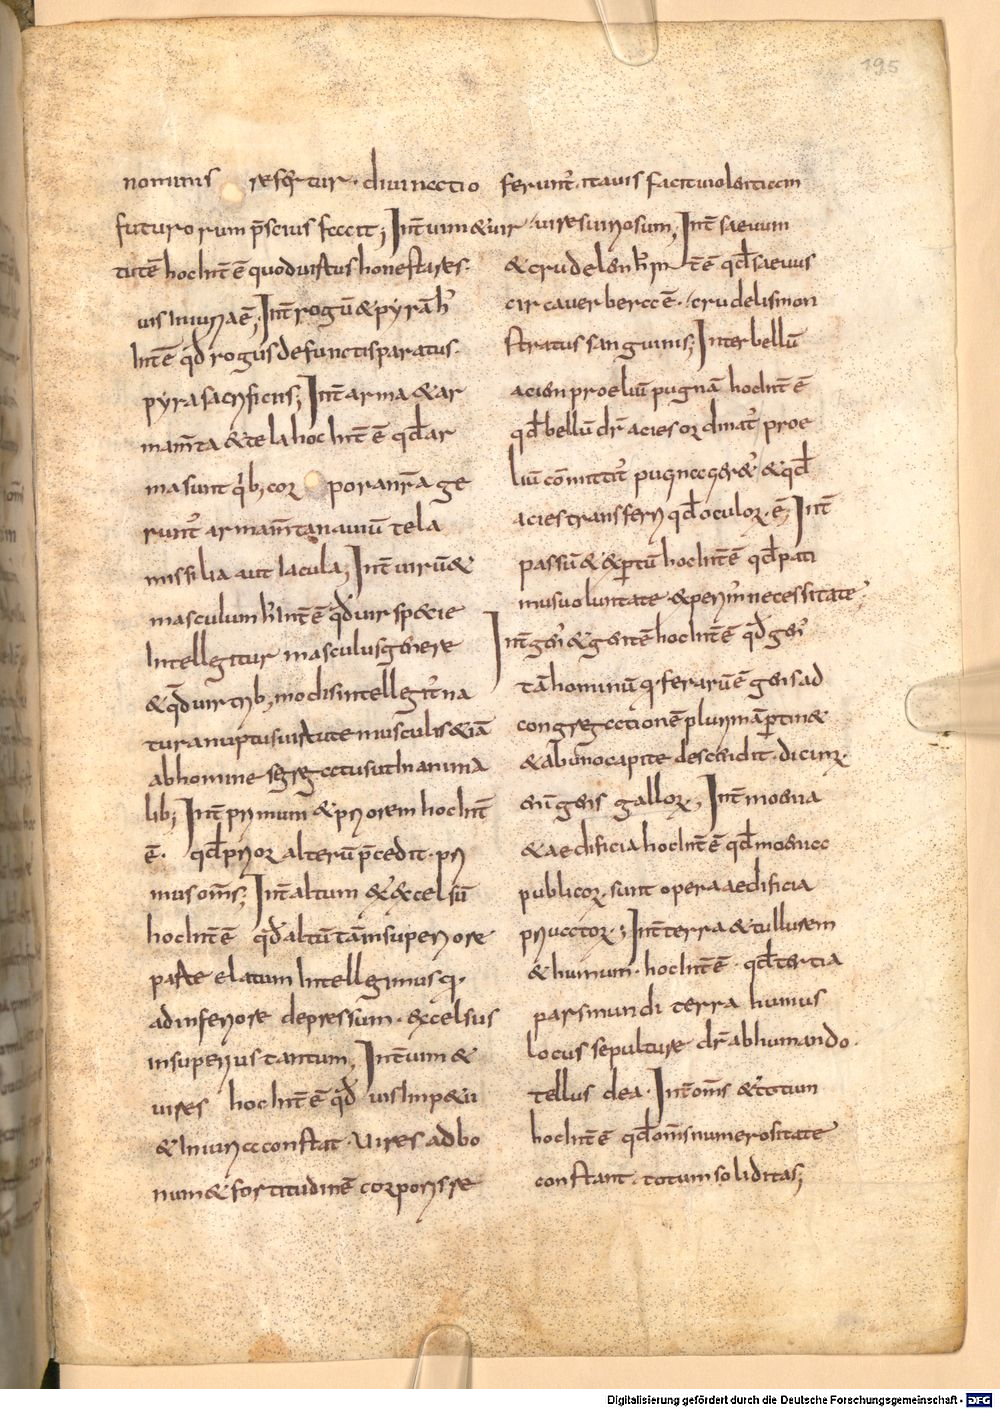 195
nominis resẜtur · diuinatio
futuro rum p̄scius facit; Int̄ uim & uir
tutē hoc int̄ ē quod uirtus honesta res ·
uis iniuria ē; Int̄ rogū & pyrā h̓
int̄ ē qđ rogus defunctis paratus ·
pyra sacrificiis; Int̄ arma & ar
mam̄ta & tela hoc int̄ ē qđ ar
ma sunt qib; cor poranr̄a ge
runt̓ armam̄ta nauiū tela
missilia aut iacula; Int̄ uirū &
masculum h̓ int̄ ē qđ uir sp&cie
intellegitur masculus genere
& qđ uir trib; modis intellegit̓ na
tura nuptus uirtute musculis & iā
ab homine segregatus ut in anima
lib; Int̄ primum & priorem hoc int̄
ē · qđ prior alterū p̄cedit · pri
mus om̄s; Int̄ altum & excelsū
hoc int̄ ē qđ altū tā insuperiore
parte elatum intellegimus q̄ ·
ad inferiore depressum · excelsus
insuperius tantum; Int̄ uim &
uires hoc int̄ ē qđ uis imp&u
& iniuria constat · uires ad bo
num & fortitudinē corporis re
ferunt̓ · ita uis facit uiolentiam
uires uinosum; Int̄ saeuum
& crudelem h̓ in t̄ ē qđ saeuus
circa uerbera ē · crudelis mon
stratus sanguinis; Inter bellū
aciem proeliū pugnā hoc int̄ ē
qđ bellū dr̄ acies ordinat̓ proe
liū cōmittit̓ pugna geret̓ & qđ
acies transferri qđ oculor · ē; Int̄
passū & &ptū hoc int̄ ē qđ pati
mus uoluntate & perim̓ necessitate;
Int̄ gen̓ & gentē hoc int̄ ē qđ gen̓
tā hominū q̄ ferarū ē gens ad
congregationē plurimā ptin&
& ab uno capite descendit · dicim̓
enī gens gallor; Int̄ moenia
& aedificia hoc int̄ ē qđ moenia
publicor · sunt opera aedificia
priuator ·; Int̄ terra & tellurem
& humum · hoc int̄ ē · qđ tertia
pars mundi terra humus
locus sepulture dr̄ ab humando ·
tellus dea · Int̄ om̄s & totum
hoc int̄ ē qđ om̄s numerositate
constant · totum soliditas;
Digitalisierung gefördert durch die Deutsche Forschungsgemeinschaft - DFG